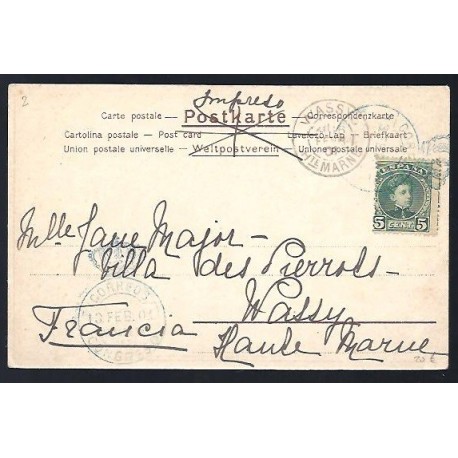 2
Impreso
Carte postale — Postkarte — Correspondenzkarte
Cartolina postale — Post card — Levelező-Lap — Briefkaart
Union postale universelle — Weltpostverein — Unione postale universale
WASSY
HTE MARNE
ESPAÑA
5 CENT. 5
Mlle Jane Major-
Villa des Pierrots-
Wassy
Francia
Haute Marne
CORREOS
13 FEB
20 €